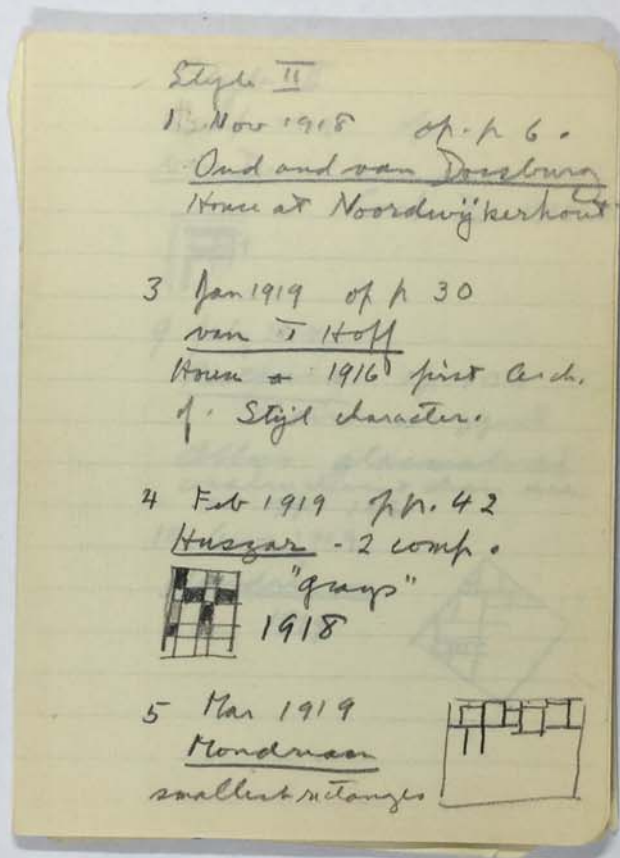 Style II
1. Nov 1918 op. p 6.
Oud and van Doesburg
House at Noordwijkerhout
3 Jan 1919 op p 30
van T Hoff
House 1916 first Arch.
of. Stijl character.
4 Feb 1919 op p. 42
Huszar - 2 comp.
"grays"
1918
5 Mar 1919
Mondriaan
smallest rectangles